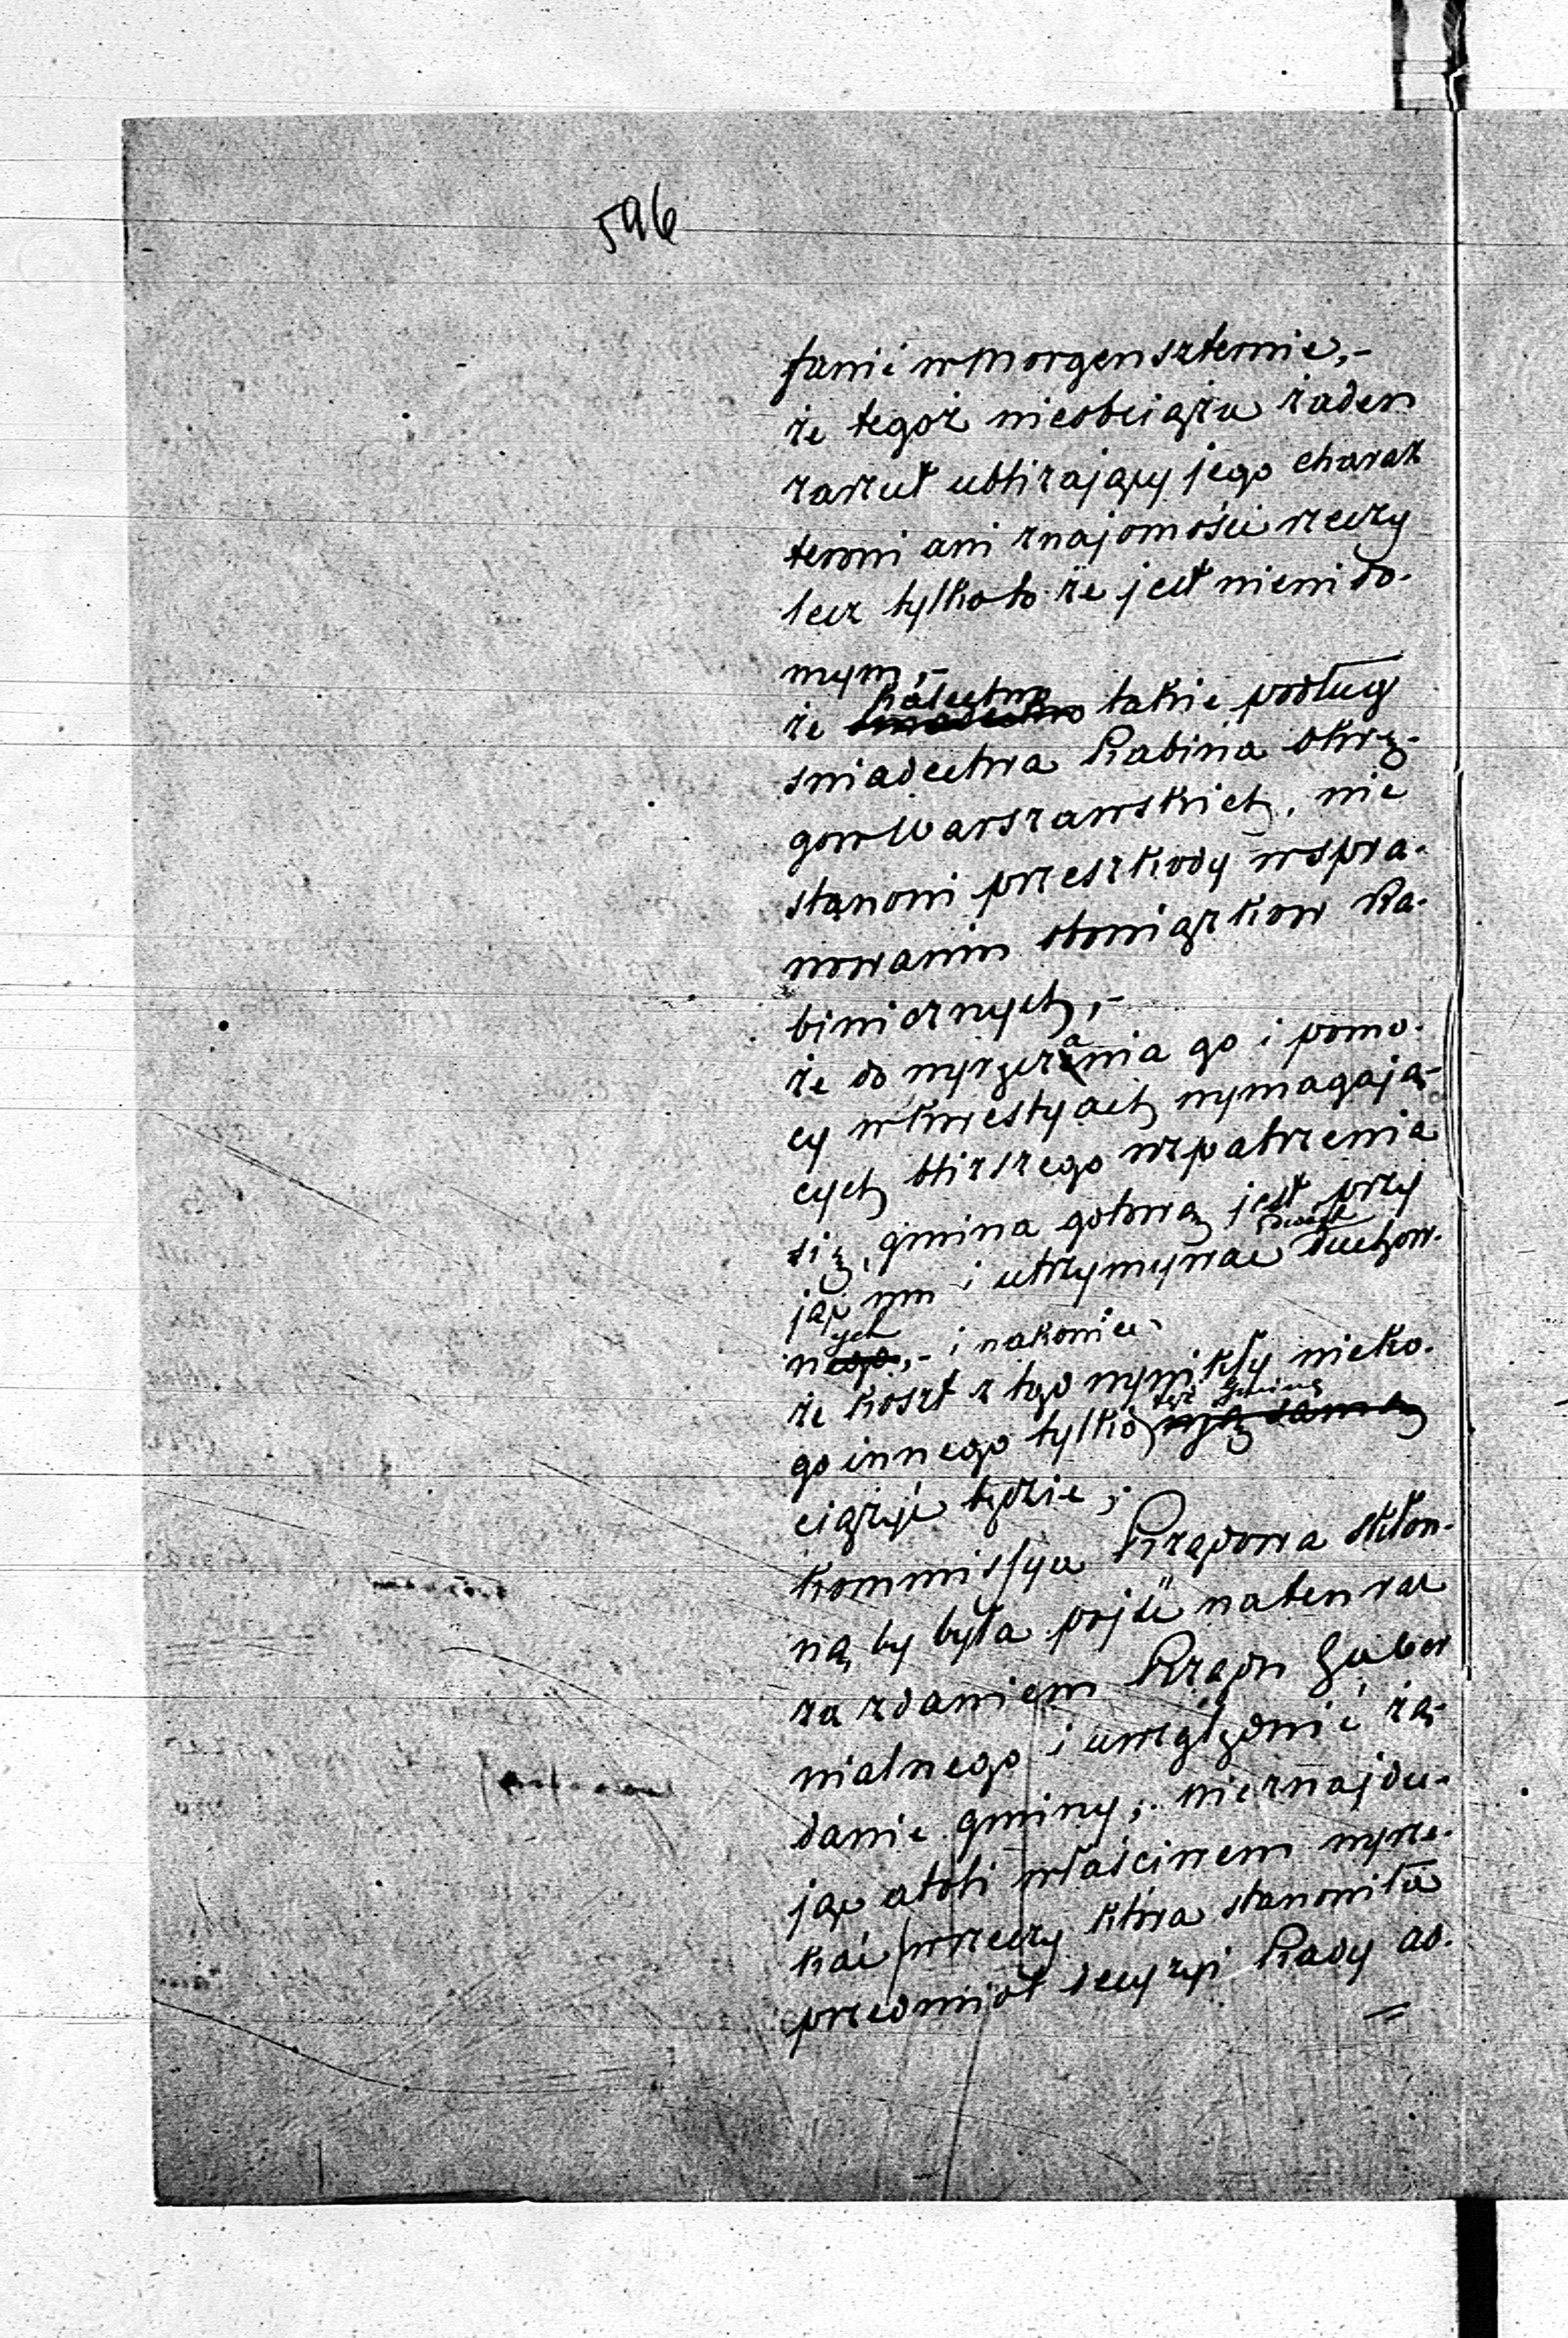 596
fanie w Morgenszternie,-
że tegoż nieobciąża żaden
zarzut ubliżający jego charak
terowi ani znajomości rzeczy
lecz tylko to że jest niewido-
mym,-
że kalectwo takie podług
świadectwa Rabina Okrę-
gow Warszawskich, nie
stanowi przeszkody w spra-
wowaniu obowiązkow Ra-
binicznych,-
że do wyręczania go i pomo-
cy w kwestyach wymagają-
cych bliższego wpatrzenia
się, gmina gotową jest przy
jąc mu i utrzymywac dwóch duchow-
nych,- i nakoniec
że koszt z tego wynikły niko-
go innego tylko też Gminę
ciążyć będzie,-
Kommissya Rządowa skłon-
ną by była pojśc natenczas
za zdaniem Rządu Guber
nialnego i uwzględnić żą-
danie gminy; nieznajdu-
jąc atoli właściwem wyrze-
kać w rzeczy ktora stanowiła
przedmiot decyzyi Rady Ad-